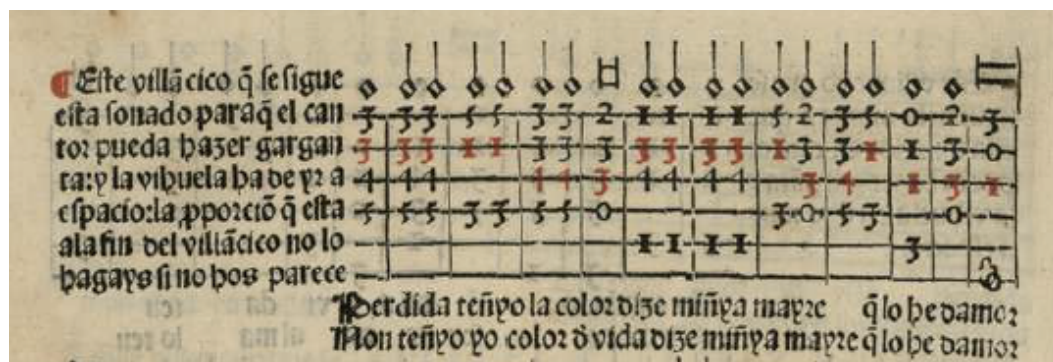 ¶ Este villãcico q̃ se sigue
esta sonado paraq̃ el can
tor pueda hazer gargan
ta: y la vihuela ha de yr a
espacio: la ꝓporciõ q̃ esta
ala fin del villãcico no lo
hagays si no hos parece
3 3 3 5 5 3 3 2 1 1 1 1 5 2 3 5 0 2 3
3 3 3 1 1 3 3 3 3 3 3 3 1 3 3 1 1 3 0
4 4 4 4 4 3 4 4 4 4 3 4 1 3 1
5 5 5 3 3 5 5 0 3 0 5 3 0
1 1 1 1 3
0
Perdida teñyo la color dize miñya mayre q̃ lo he damor
Non teñyo yo color d̃ vida dize miñya mayre q̃ lo he damor